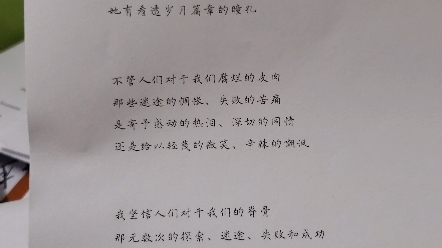 她有看透岁月篇章的瞳孔
不管人们对于我们腐烂的皮肉
那些迷途的惆怅、失败的苦痛
是寄予感动的热泪、深切的同情
还是给以轻蔑的微笑、辛辣的嘲讽
我坚信人们对于我们的脊骨
那无数次的探索、迷途、失败和成功